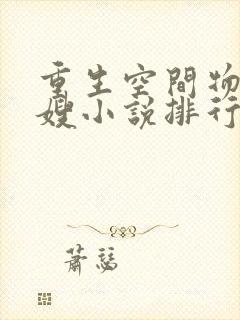 重生空間物
嫂小說排行
蕭瑟